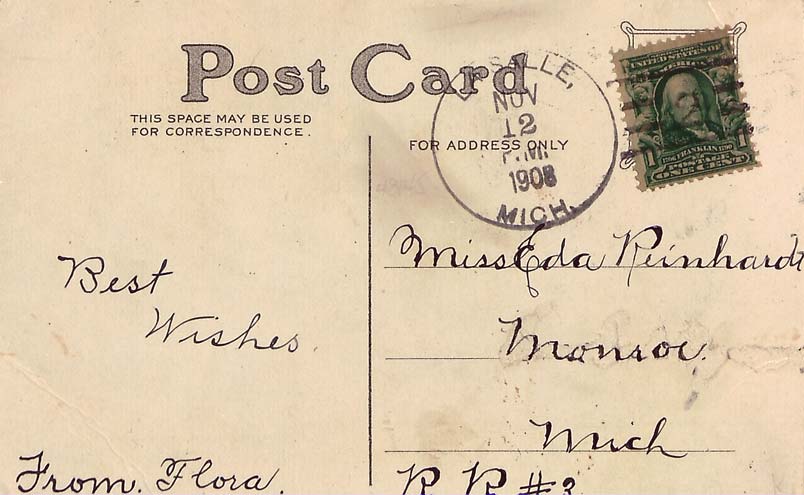 Post Card
THIS SPACE MAY BE USED
FOR CORRESPONDENCE.
FOR ADDRESS ONLY
LASALLE,
NOV
12
P.M.
1908
MICH.
UNITED STATES OF
AMERICA
1 FRANKLIN 1
POSTAGE
ONE CENT
Best
Wishes.
From. Flora.
Miss Eda Reinhardt
Monroe.
Mich
R R #3